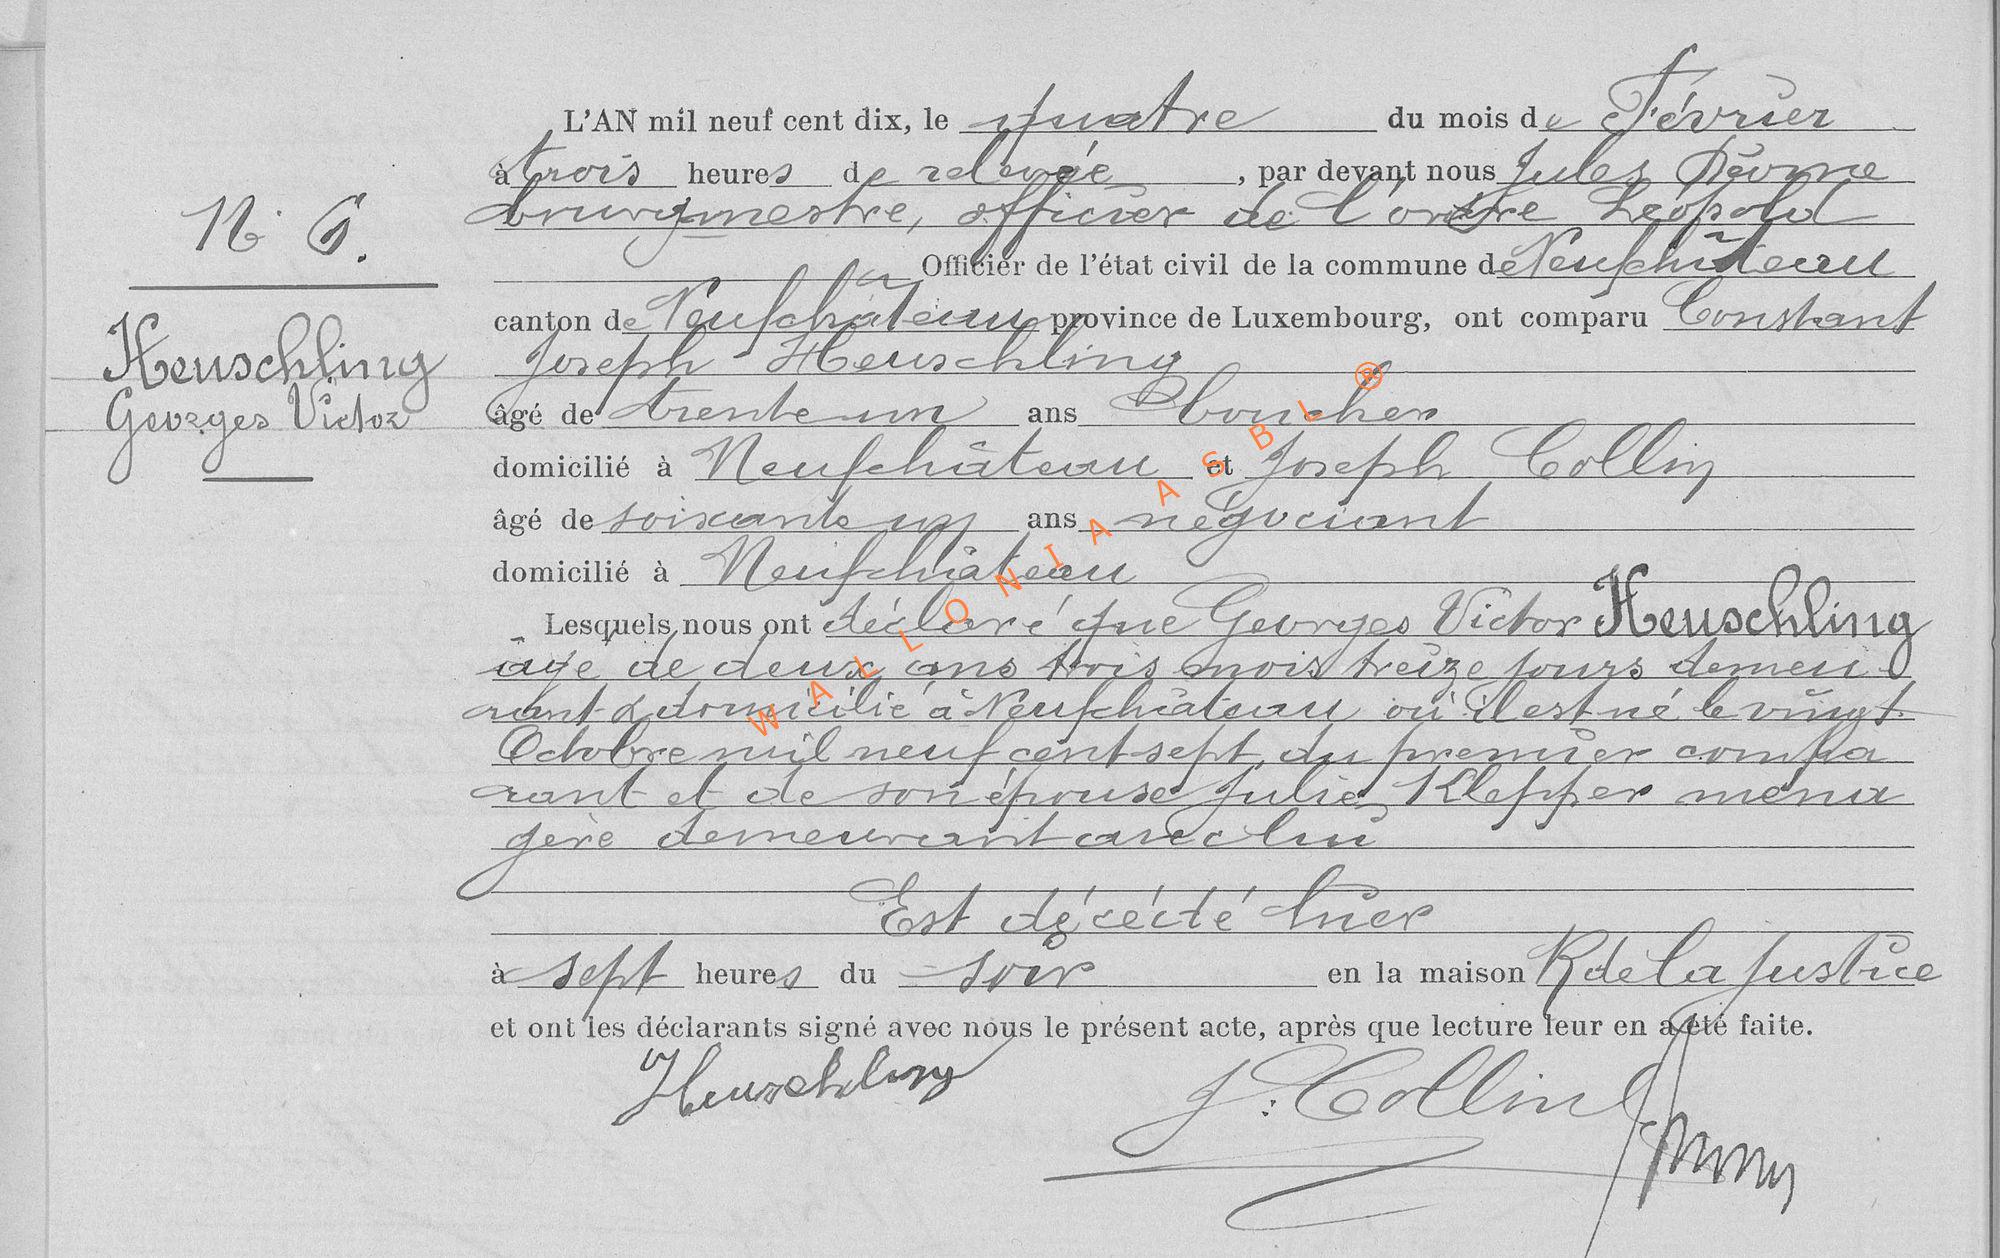 N° 6.
Heuschling
Georges Victor
L'AN mil neuf cent dix, le quatre du mois de Février
à trois heures de relevée, par devant nous Jules
bourgmestre, officier de l'ordre Léopold
Officier de l'état civil de la commune de Neufchâteau
canton de Neufchâteau province de Luxembourg, ont comparu Constant
Joseph Heuschling
âgé de trente un ans boucher
domicilié à Neufchâteau et Joseph Collin
âgé de soixante un ans négociant
domicilié à Neufchâteau
Lesquels nous ont déclaré que Georges Victor Heuschling
âgé de deux ans trois mois treize jours demeu
rant & domicilié à Neufchâteau où il est né le vingt
Octobre mil neuf cent sept, du premier compa
rant et de son épouse Julie Klepper ména
gère demeurant avec lui
Est décédé hier
à sept heures du soir en la maison R de la Justice
et ont les déclarants signé avec nous le présent acte, après que lecture leur en a été faite.
Heuschling
J. Collin
WALLONIA ASBL ®